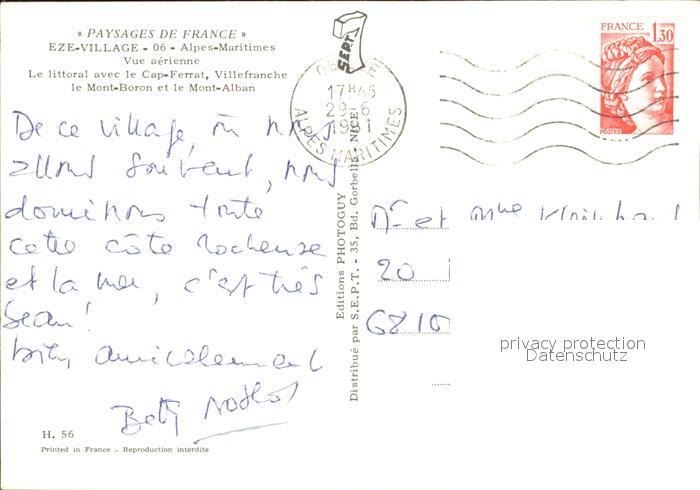 « PAYSAGES DE FRANCE »
EZE-VILLAGE - 06 - Alpes-Maritimes
Vue aérienne
Le littoral avec le Cap-Ferrat, Villefranche
le Mont-Boron et le Mont-Alban
De ce village, où nous
allons souvent, nous
dominons toute
cette côte rocheuse
et la mer, c'est très
beau!
bien amicalement
Betty
H. 56
Printed in France - Reproduction interdite
SEPT
17H45
29-6
ALPES MARITIMES
Editions PHOTOGUY
Distribué par S.E.P.T. - 35, Bd. Gorbella - NICE
FRANCE
1,30
POSTES
Mr et Mme
20
6810
privacy protection
Datenschutz